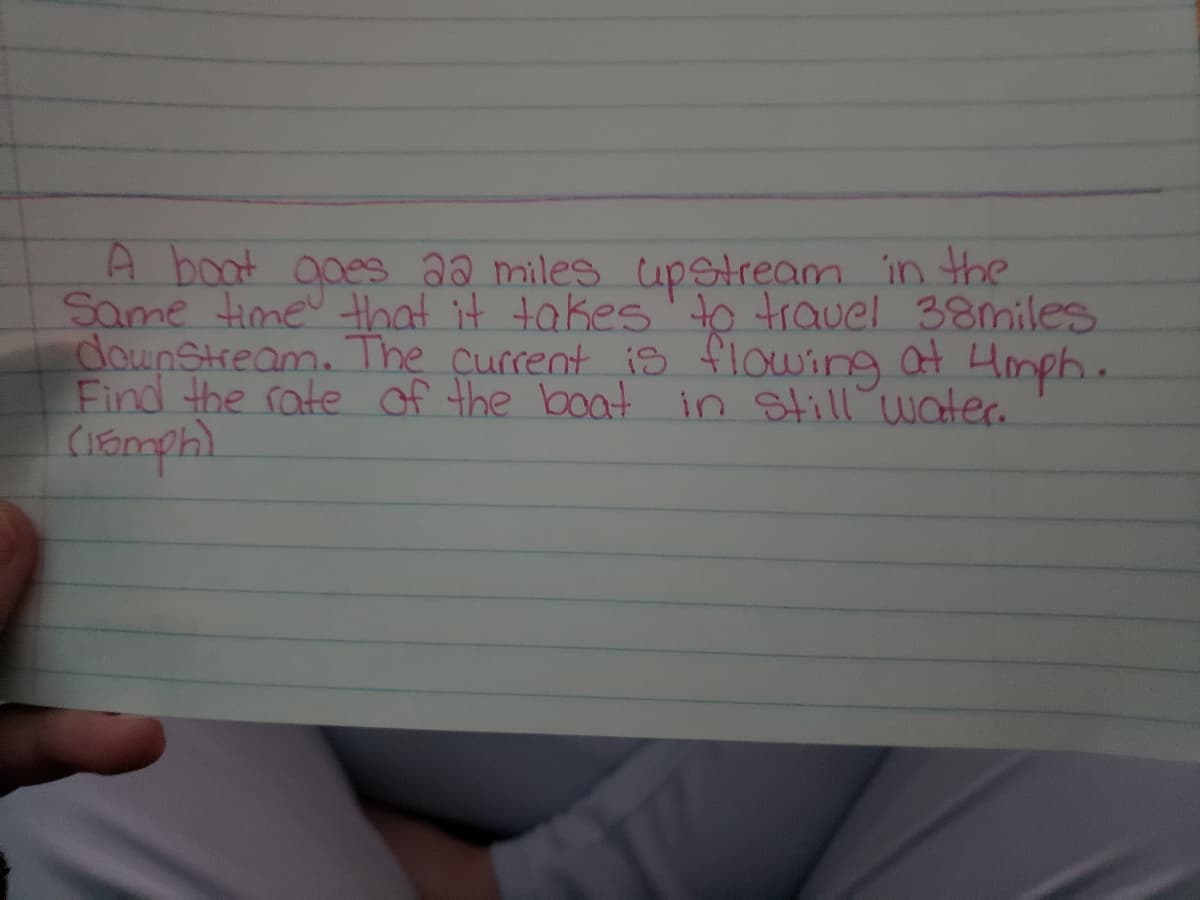 A boat goes 22 miles upstream in the
Same time that it takes to travel 38miles
downstream. The current is flowing at 4mph.
Find the rate of the boat in still water.
(15mph)